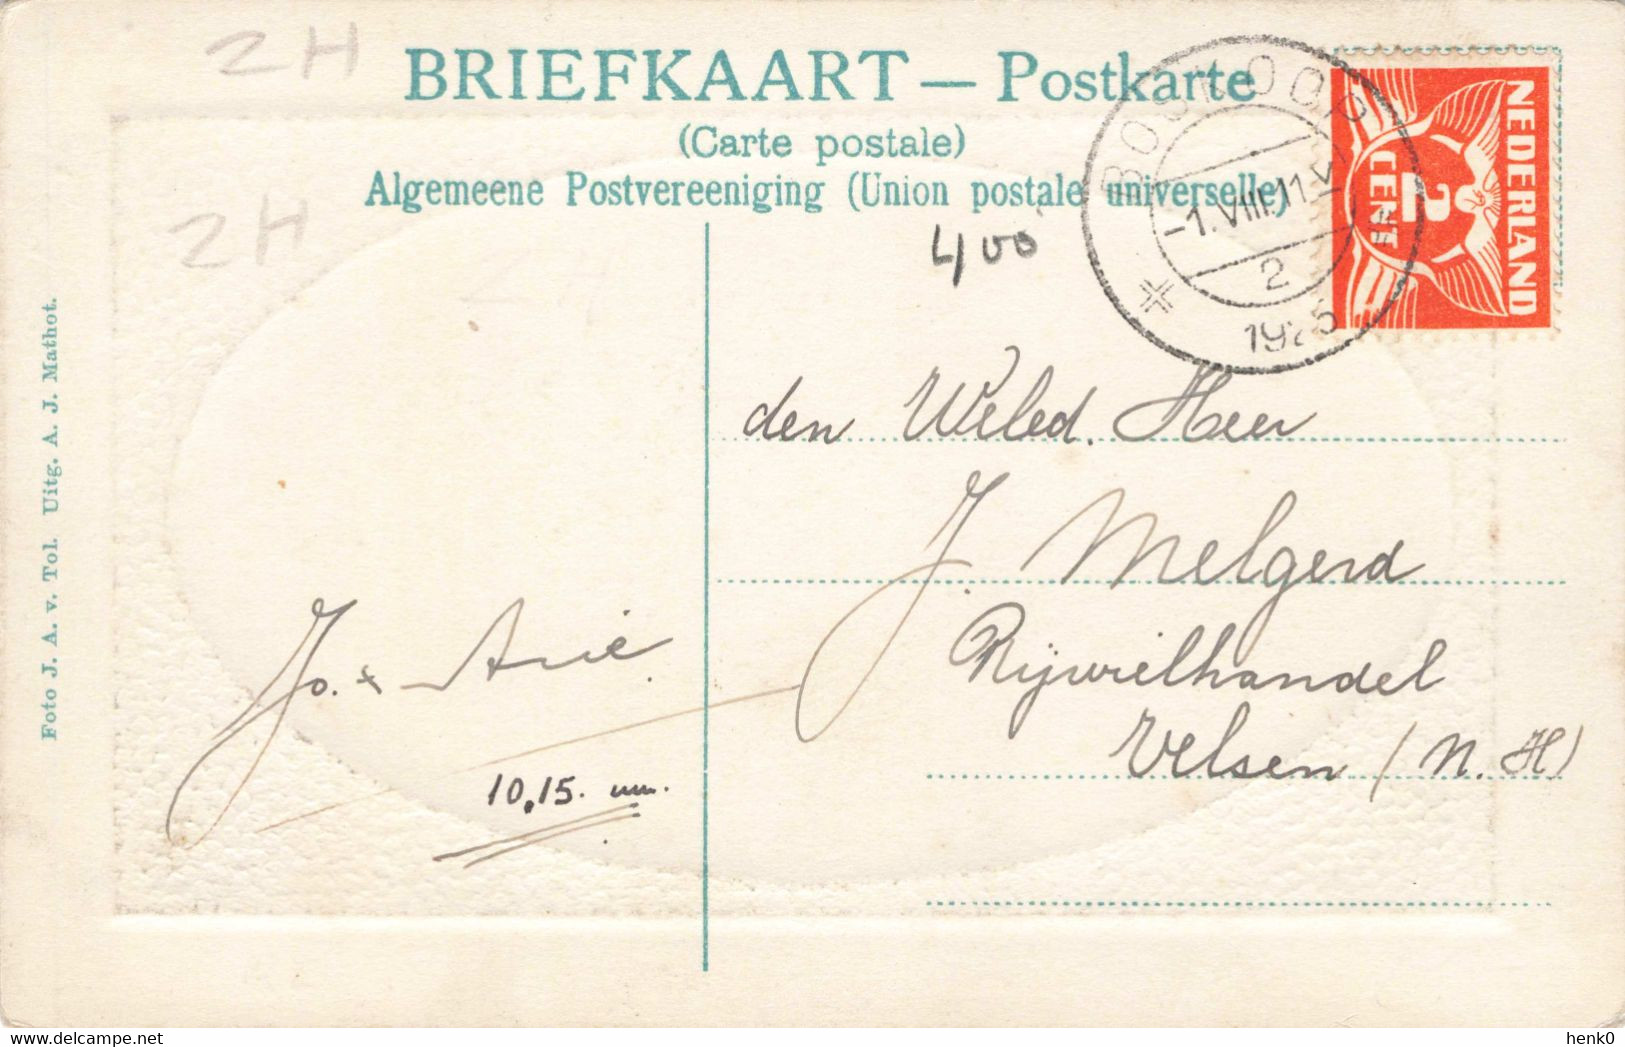 2H
BRIEFKAART — Postkarte
(Carte postale)
Algemeene Postvereeniging (Union postale universelle)
2H
400
BOSKOOP
-1.VIII.11 V
2
NEDERLAND
2
CENT
Foto J. A. v. Tol. Uitg. A. J. Mathot.
den Weled. Heer
J. Melgerd
Rijwielhandel
Velsen (N. H)
Jo. + Arie.
10,15. vm.
henk0